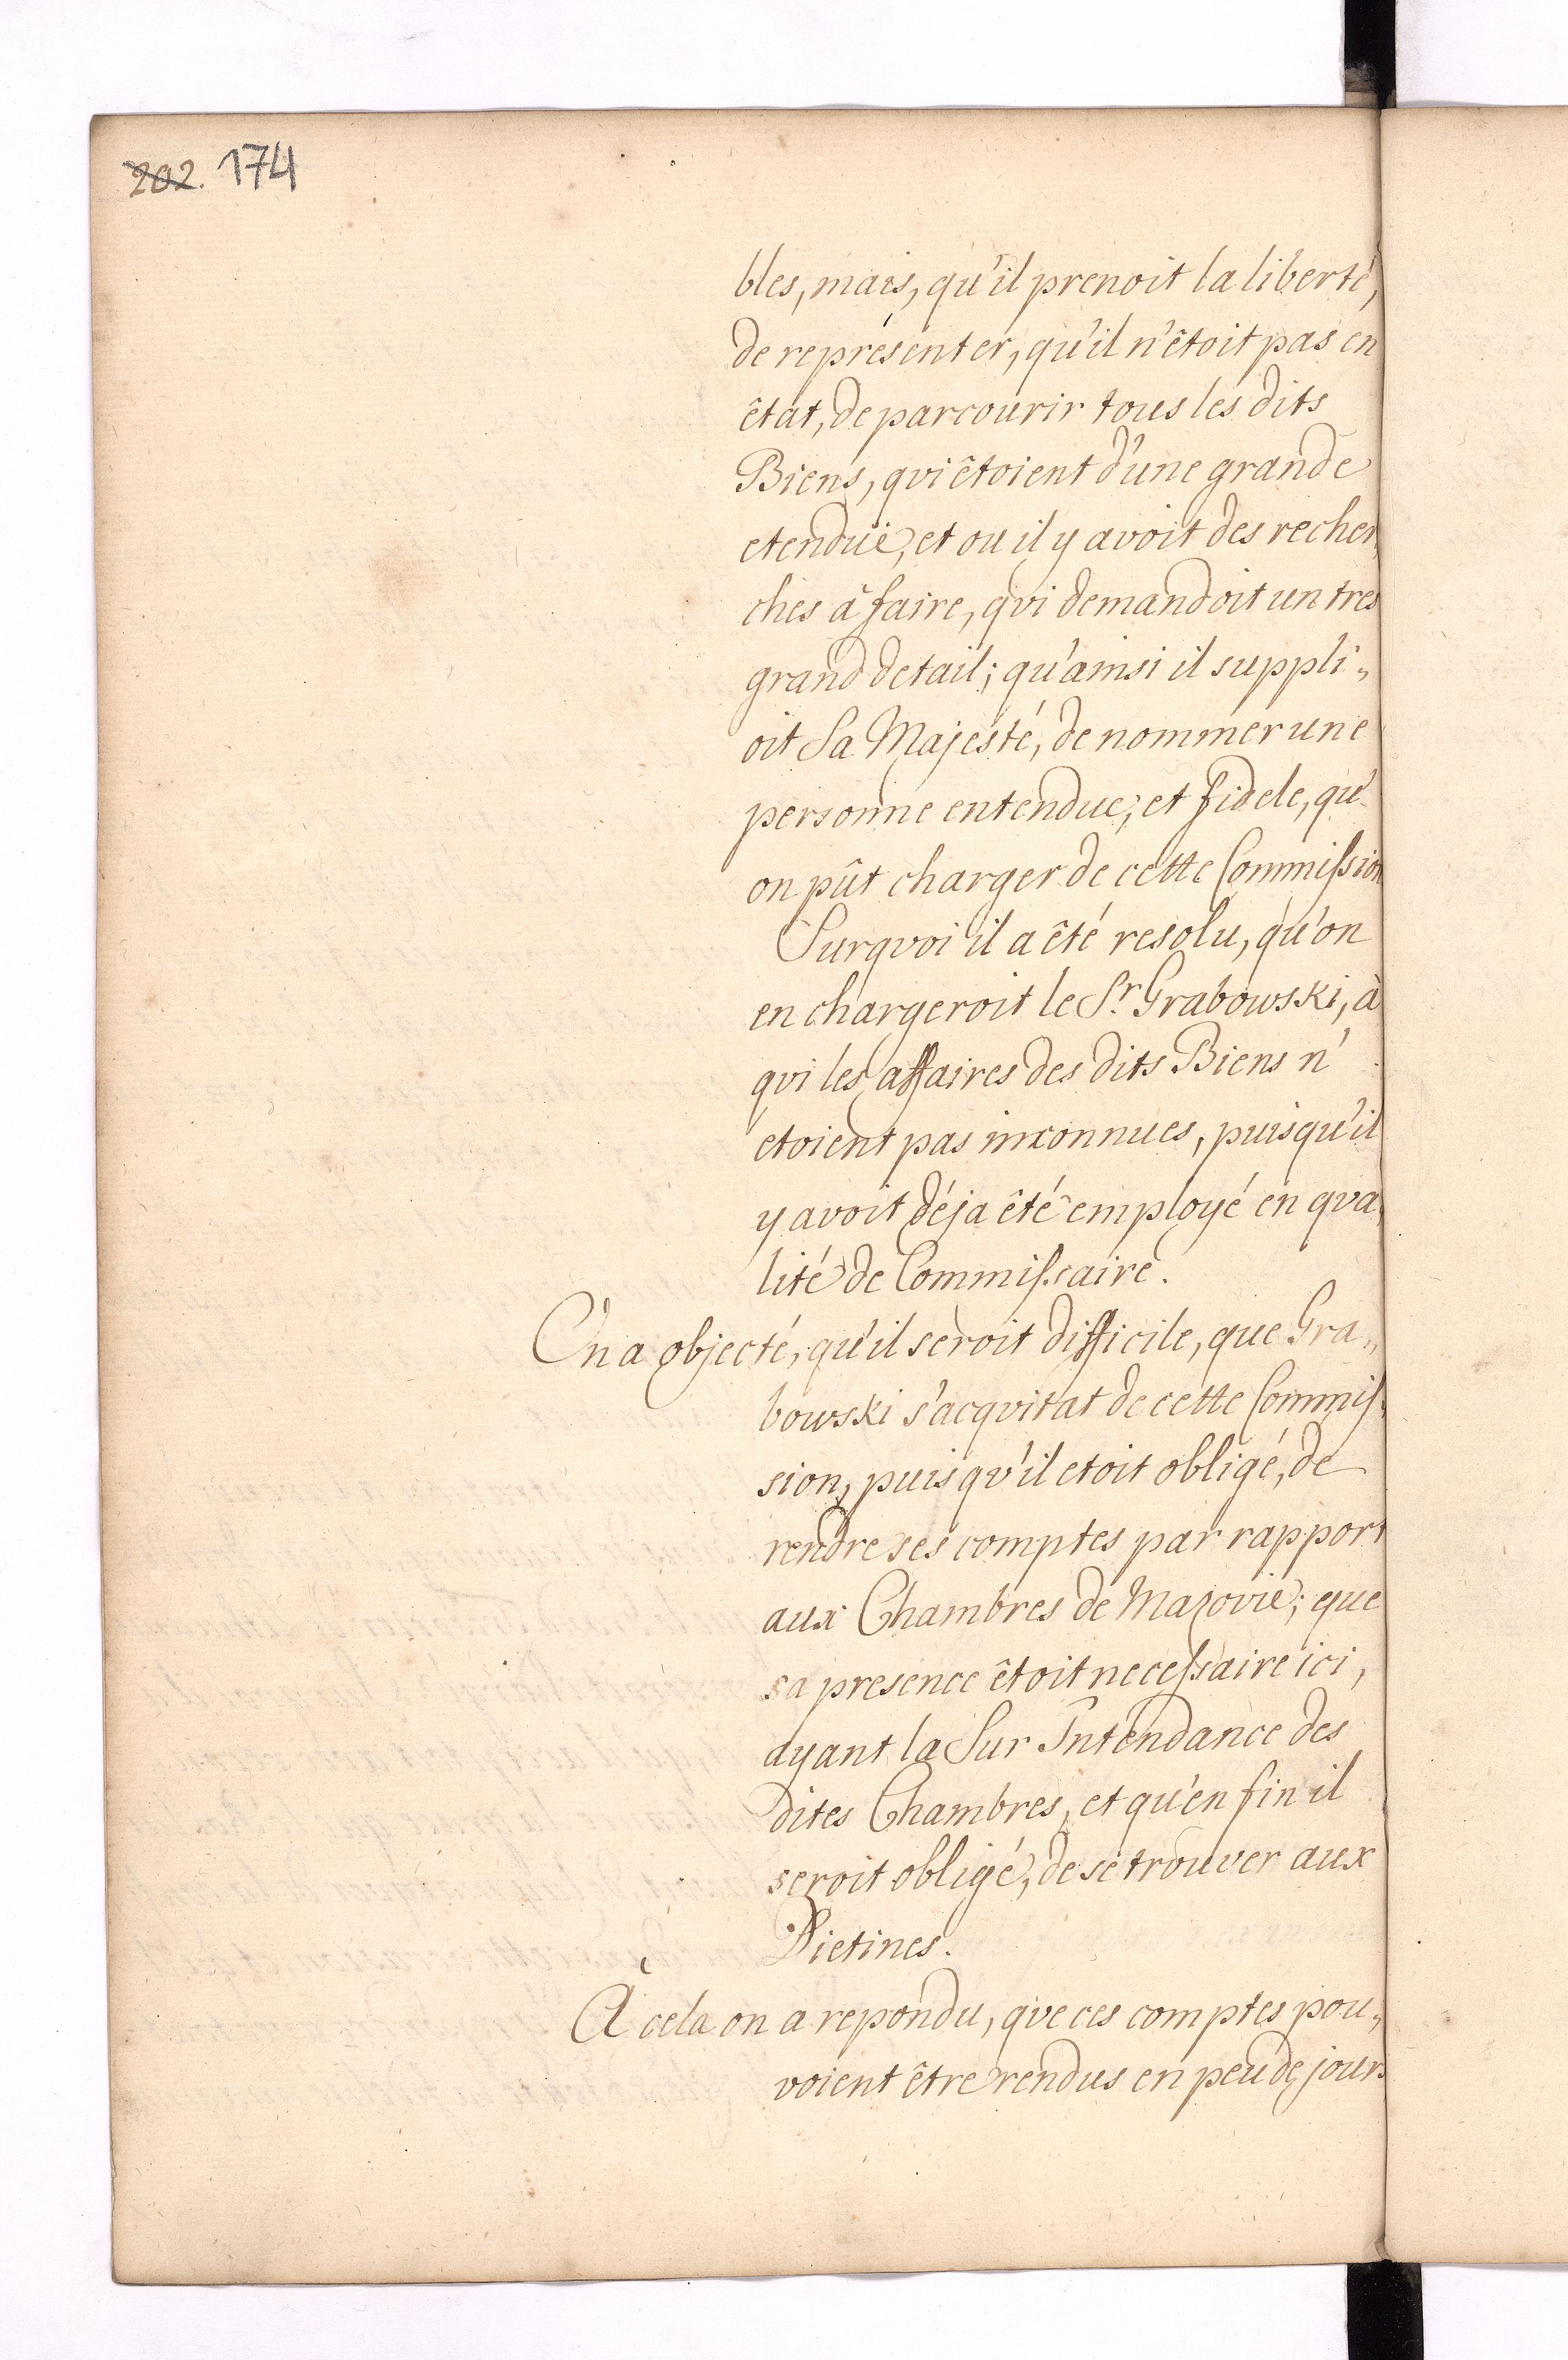 202. 174
bles, mais, qu'il prenoit la liberté,
de représenter, qu'il n'êtoit pas en
êtat, de parcourir tous les dits
Biens, qui êtoient d'une grande
etenduë, et ou il y avoit des recher„
ches à faire, qvi demandoit un tres
grand detail; qu'ainsi il suppli„
oit Sa Majesté, de nommer une
personne entendue, et fidele, qu'
on pût charger de cette Commission
Surqvoi il a êté resolu, qu'on
en chargeroit le Sr. Grabowski, à
qvi les affaires des dits Biens n'
etoient pas inconnues, puisqu'il
y avoit déja êté employé en qva„
lité de Commissaire.
On a objecté, qu'il seroit difficile, que Gra„
bowski s'acqvitat de cette Commis„
sion, puisqv'il etoit obligé, de
rendre ses comptes par rapport
aux Chambres de Mazovie; que
sa presence êtoit necessaire ici,
ayant la Sur Intendance des
dites Chambres, et qu'en fin il
seroit obligé, de se trouver aux
Dietines.
À cela on a repondu, qve ces comptes pou„
voient être rendus en peu de jours